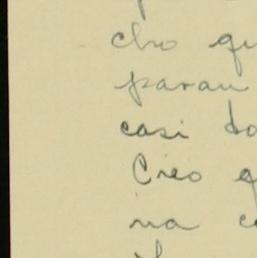 cho qu
paran
casi do
Creo q
na c